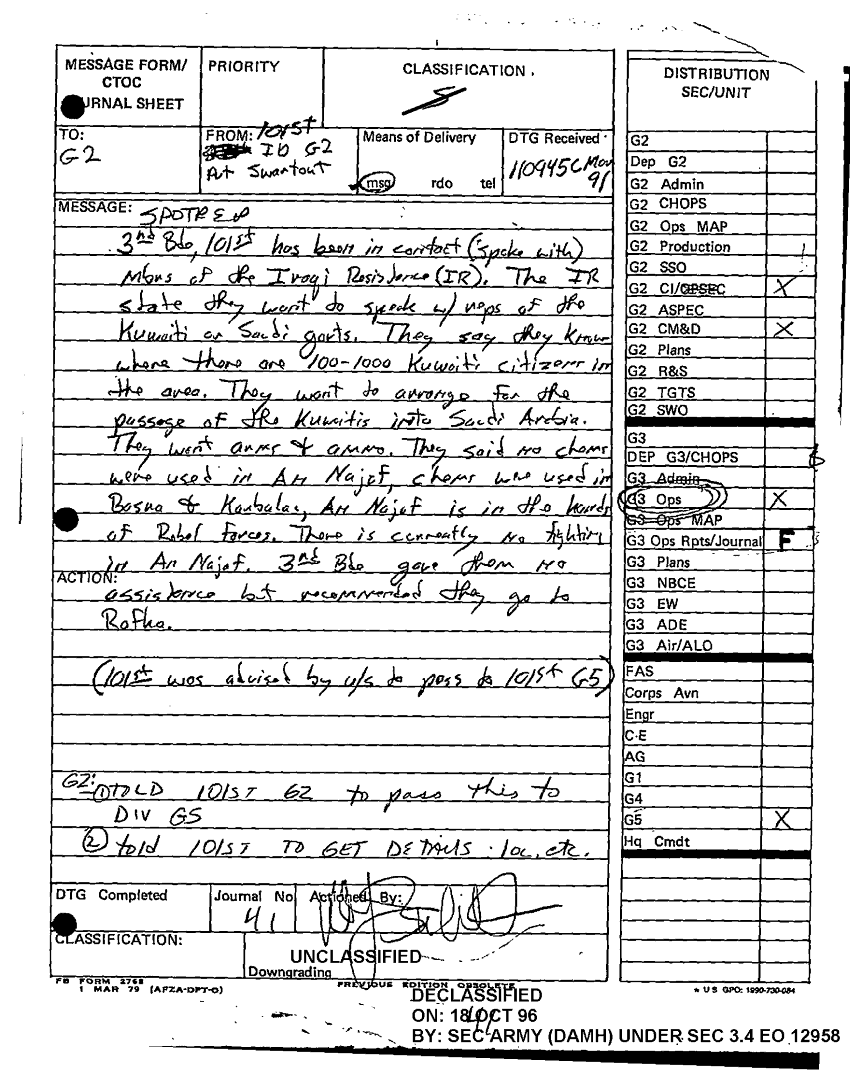 MESSAGE FORM/
CTOC
JURNAL SHEET
PRIORITY
CLASSIFICATION
S
TO:
G2
FROM: 101st
ID G2
Art Swartout
Means of Delivery
msg rdo tel
DTG Received
110945C Mar
91
MESSAGE: SPOTREP
3rd Bde, 101st has been in contact (spoke with)
Mbrs of the Iraqi Resistence (IR). The IR
state they want to speak w/ reps of the
Kuwaiti or Saudi govts. They say they know
where there are 100-1000 Kuwaiti citizens in
the area. They want to arrange for the
passage of the Kuwaitis into Saudi Arabia.
They want arms & ammo. They said no chems
were used in An Najaf, chems were used in
Basra & Karbala, An Najaf is in the hands
of Rebel forces. There is currently no fighting
in An Najaf. 3rd Bde gave them no
ACTION: assistance but recommended they go to
Rafha.
(101st was advised by u/s to pass to 101st G5)
G2: ① TOLD 101ST G2 to pass this to
DIV G5
② told 101ST TO GET DETAILS loc, etc.
DTG Completed
Journal No
41
Actioned By:
CLASSIFICATION:
UNCLASSIFIED
Downgrading
FB FORM 2768
1 MAR 79 (AFZA-DPT-O)
PREVIOUS EDITION OBSOLETE
DISTRIBUTION
SEC/UNIT
G2
Dep G2
G2 Admin
G2 CHOPS
G2 Ops MAP
G2 Production
G2 SSO
G2 CI/OPSEC X
G2 ASPEC
G2 CM&D X
G2 Plans
G2 R&S
G2 TGTS
G2 SWO
G3
DEP G3/CHOPS
G3 Admin
G3 Ops X
G3 Ops MAP
G3 Ops Rpts/Journal F
G3 Plans
G3 NBCE
G3 EW
G3 ADE
G3 Air/ALO
FAS
Corps Avn
Engr
C-E
AG
G1
G4
G5 X
Hq Cmdt
* U S GPO: 1990-730-084
DECLASSIFIED
ON: 18 OCT 96
BY: SEC ARMY (DAMH) UNDER SEC 3.4 EO 12958